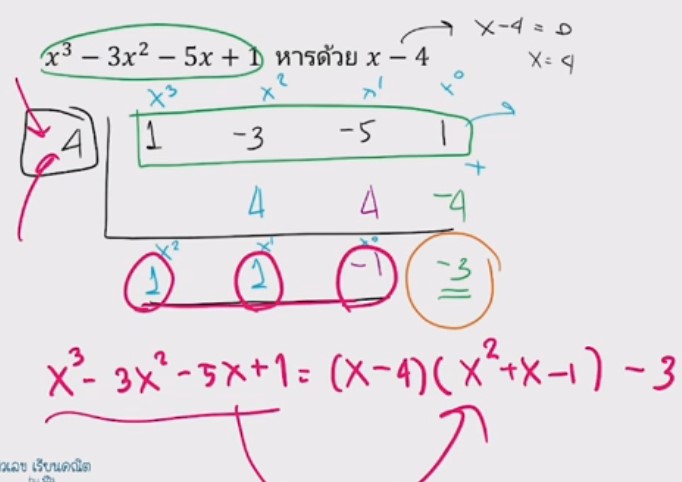 x³ − 3x² − 5x + 1 หารด้วย x − 4
x-4 = 0
x = 4
x³ x² x¹ x⁰
4 1 -3 -5 1
+
4 4 -4
x² x¹ x⁰
1 1 -1 -3
x³ - 3x² - 5x + 1 = (x-4)(x² + x - 1) - 3
เรียนคณิต